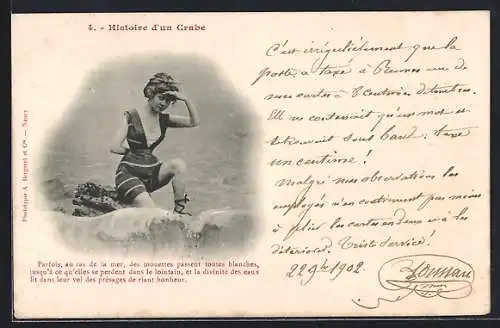 4. - Histoire d'un Crabe
Phototypie A. Bergeret et Cie. — Nancy
Parfois, au ras de la mer, des mouettes passent toutes blanches,
jusqu'à ce qu'elles se perdent dans le lointain, et la divinité des eaux
lit dans leur vol des présages de riant bonheur.
C'est irrégulièrement que la
poste a taxé à Rennes une de
mes cartes à 8 centimes
Elle ne contenait qu'un mot et
sous bande, taxe
un centime!
Malgré mes observations les
employés n'en continuent pas moins
à plier les cartes en deux et à les
détériorer. Triste service!
22 9bre 1902.